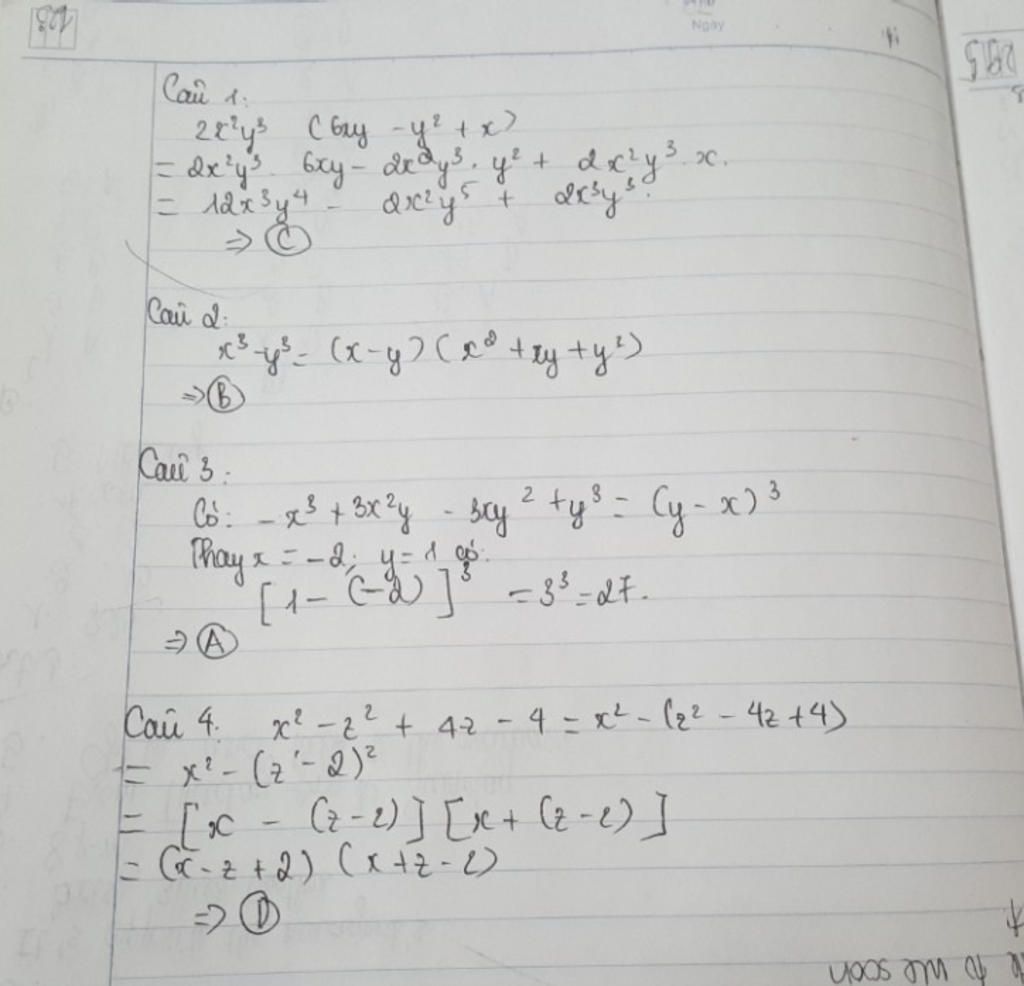 Ngày
Câu 1:
2x²y³ (6xy - y² + x)
= 2x²y³. 6xy - 2x²y³. y² + 2x²y³. x.
= 12x³y⁴ - 2x²y⁵ + 2x³y³.
=> C
Câu 2:
x³ - y³ = (x - y) (x² + xy + y²)
=> B
Câu 3:
Có: - x³ + 3x²y - 3xy² + y³ = (y - x)³
Thay x = -2; y = 1 có:
[1 - (-2)]³ = 3³ = 27.
=> A
Câu 4. x² - z² + 4z - 4 = x² - (z² - 4z + 4)
= x² - (z - 2)²
= [x - (z - 2)] [x + (z - 2)]
= (x - z + 2) (x + z - 2)
=> D
to me soon